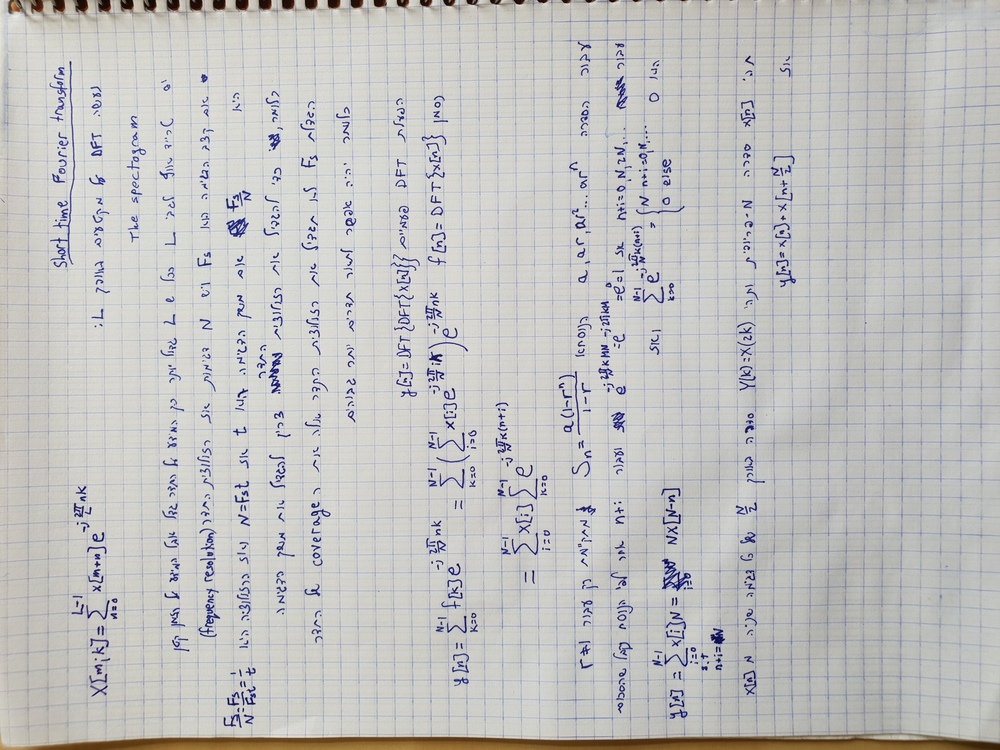 Short time Fourier transform
X[m;k] = \sum_{n=0}^{L-1} x[m+n] e^{-j\frac{2\pi}{L}nk}
נעשה DFT על מקטעים באורך L:
The spectogram
יש טרייד אוף לגבי L ככל ש L גדול יותר כך המידע על התדר גדל אבל המידע על הזמן קטן
• אם קצב הדגימה הוא Fs ויש N דגימות אז רזולוציית התדר (frequency resolution)
היא \frac{Fs}{N} אם משך הדגימה הוא t אז N=Fst ואז הרזולוציה היא \frac{Fs}{N}=\frac{Fs}{Fst}=\frac{1}{t}
כלומר, כדי להגדיל את רזולוציית התדר צריך להגדיל את משך הדגימה
הגדלת Fs לא תגדיל את רזולוציית התדר אלה את ה coverage של התדר
כלומר יהיה אפשר לתאר תדרים יותר גבוהים
הפעלת DFT פעמיים y[n]=DFT{DFT{x[n]}}
נסמן f[n]=DFT{x[n]}
y[n] = \sum_{k=0}^{N-1} f[k] e^{-j\frac{2\pi}{N}nk} = \sum_{k=0}^{N-1} (\sum_{i=0}^{N-1} x[i] e^{-j\frac{2\pi}{N}ik}) e^{-j\frac{2\pi}{N}nk}
= \sum_{i=0}^{N-1} x[i] \sum_{k=0}^{N-1} e^{-j\frac{2\pi}{N}k(n+i)}
עבור הסדרה a, ar, ar^2 ... ar^n הנוסחא S_n = \frac{a(1-r^n)}{1-r} מתקיימת רק עבור r≠1
עבור n+i=0,N,2N,... אז e^{-j\frac{2\pi}{N}kMN} = e^{-j2\pi kM} = e^0 = 1 ועבור n+i אחר לפי הנוסח נקבל שהסכום
הוא 0 ואז \sum_{k=0}^{N-1} e^{-j\frac{2\pi}{N}k(n+i)} = { N n+i=0,N,... 0 else
y[n] = \sum_{i=0 s.t n+i=N}^{N-1} x[i]N = Nx[N-n]
תהי x[n] סדרה N-פריודית ותהי Y(k)=X(2k) סדרה באורך \frac{N}{2} של כל דגימה שניה מ x[n]
אז y[n]=x[n]+x[n+\frac{N}{2}]